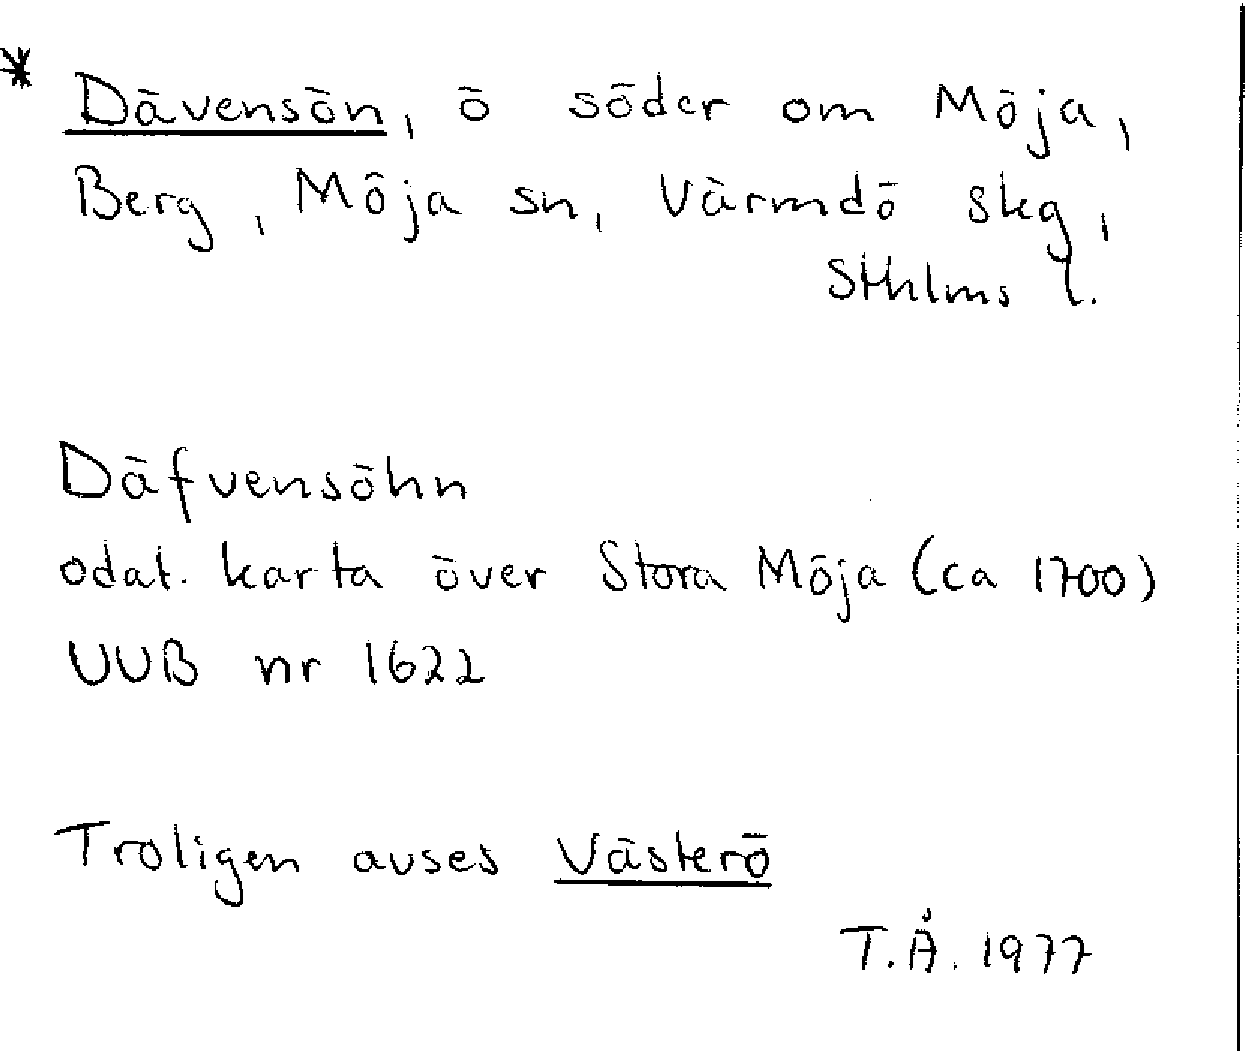 * Dävensön, ö söder om Möja,
Berg, Möja sn, Värmdö skg,
Sthlms l.
Däfvensöhn
odat. karta över Stora Möja (ca 1700)
UUB nr 1622
Troligen avses Västerö
T.Å. 1977